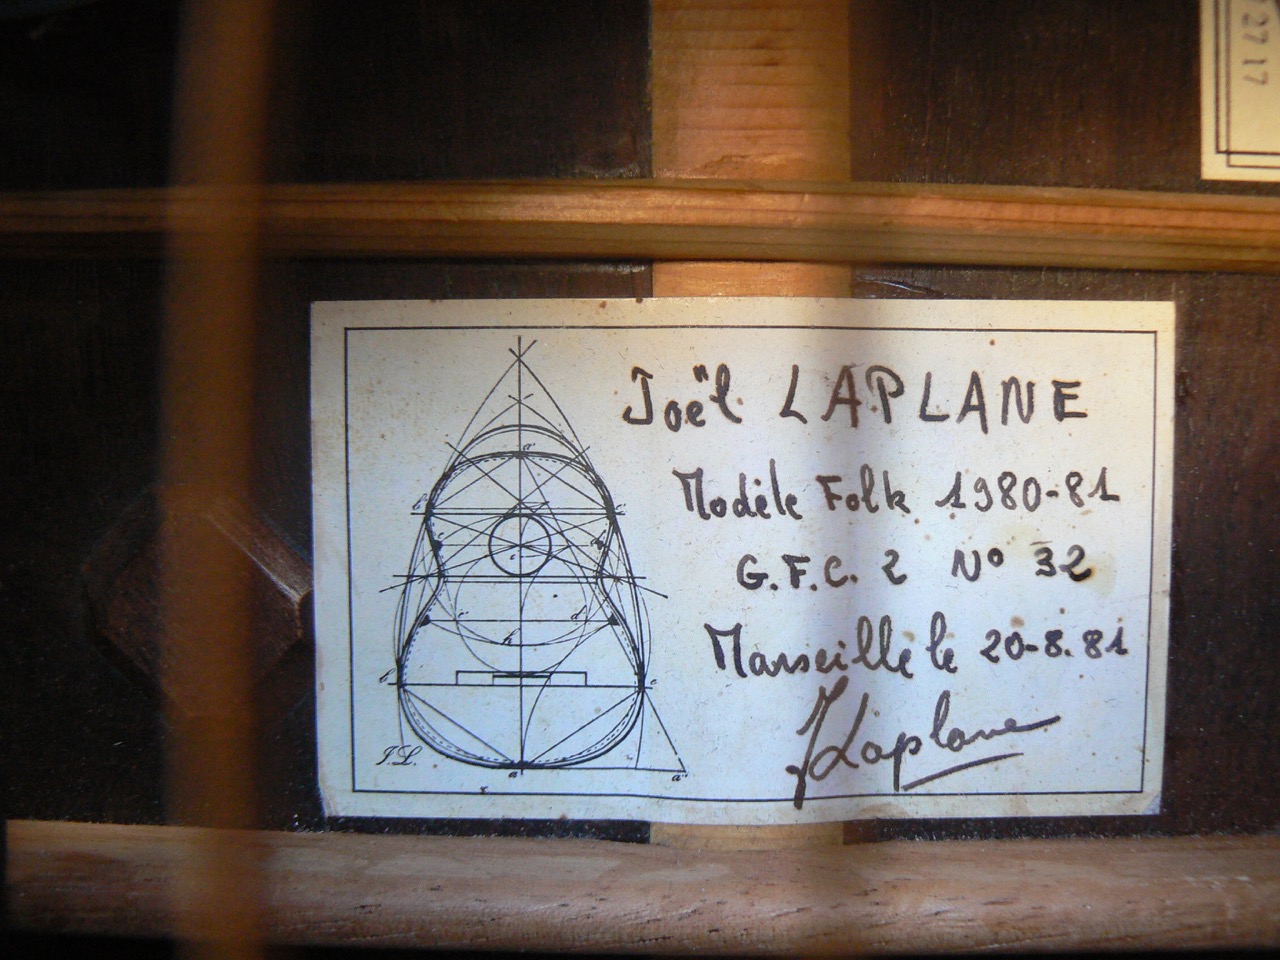 27 17
Joël LAPLANE
Modèle Folk 1980-81
G.F.C. 2 N° 32
Marseille le 20-8.81
JLaplane
J.L.